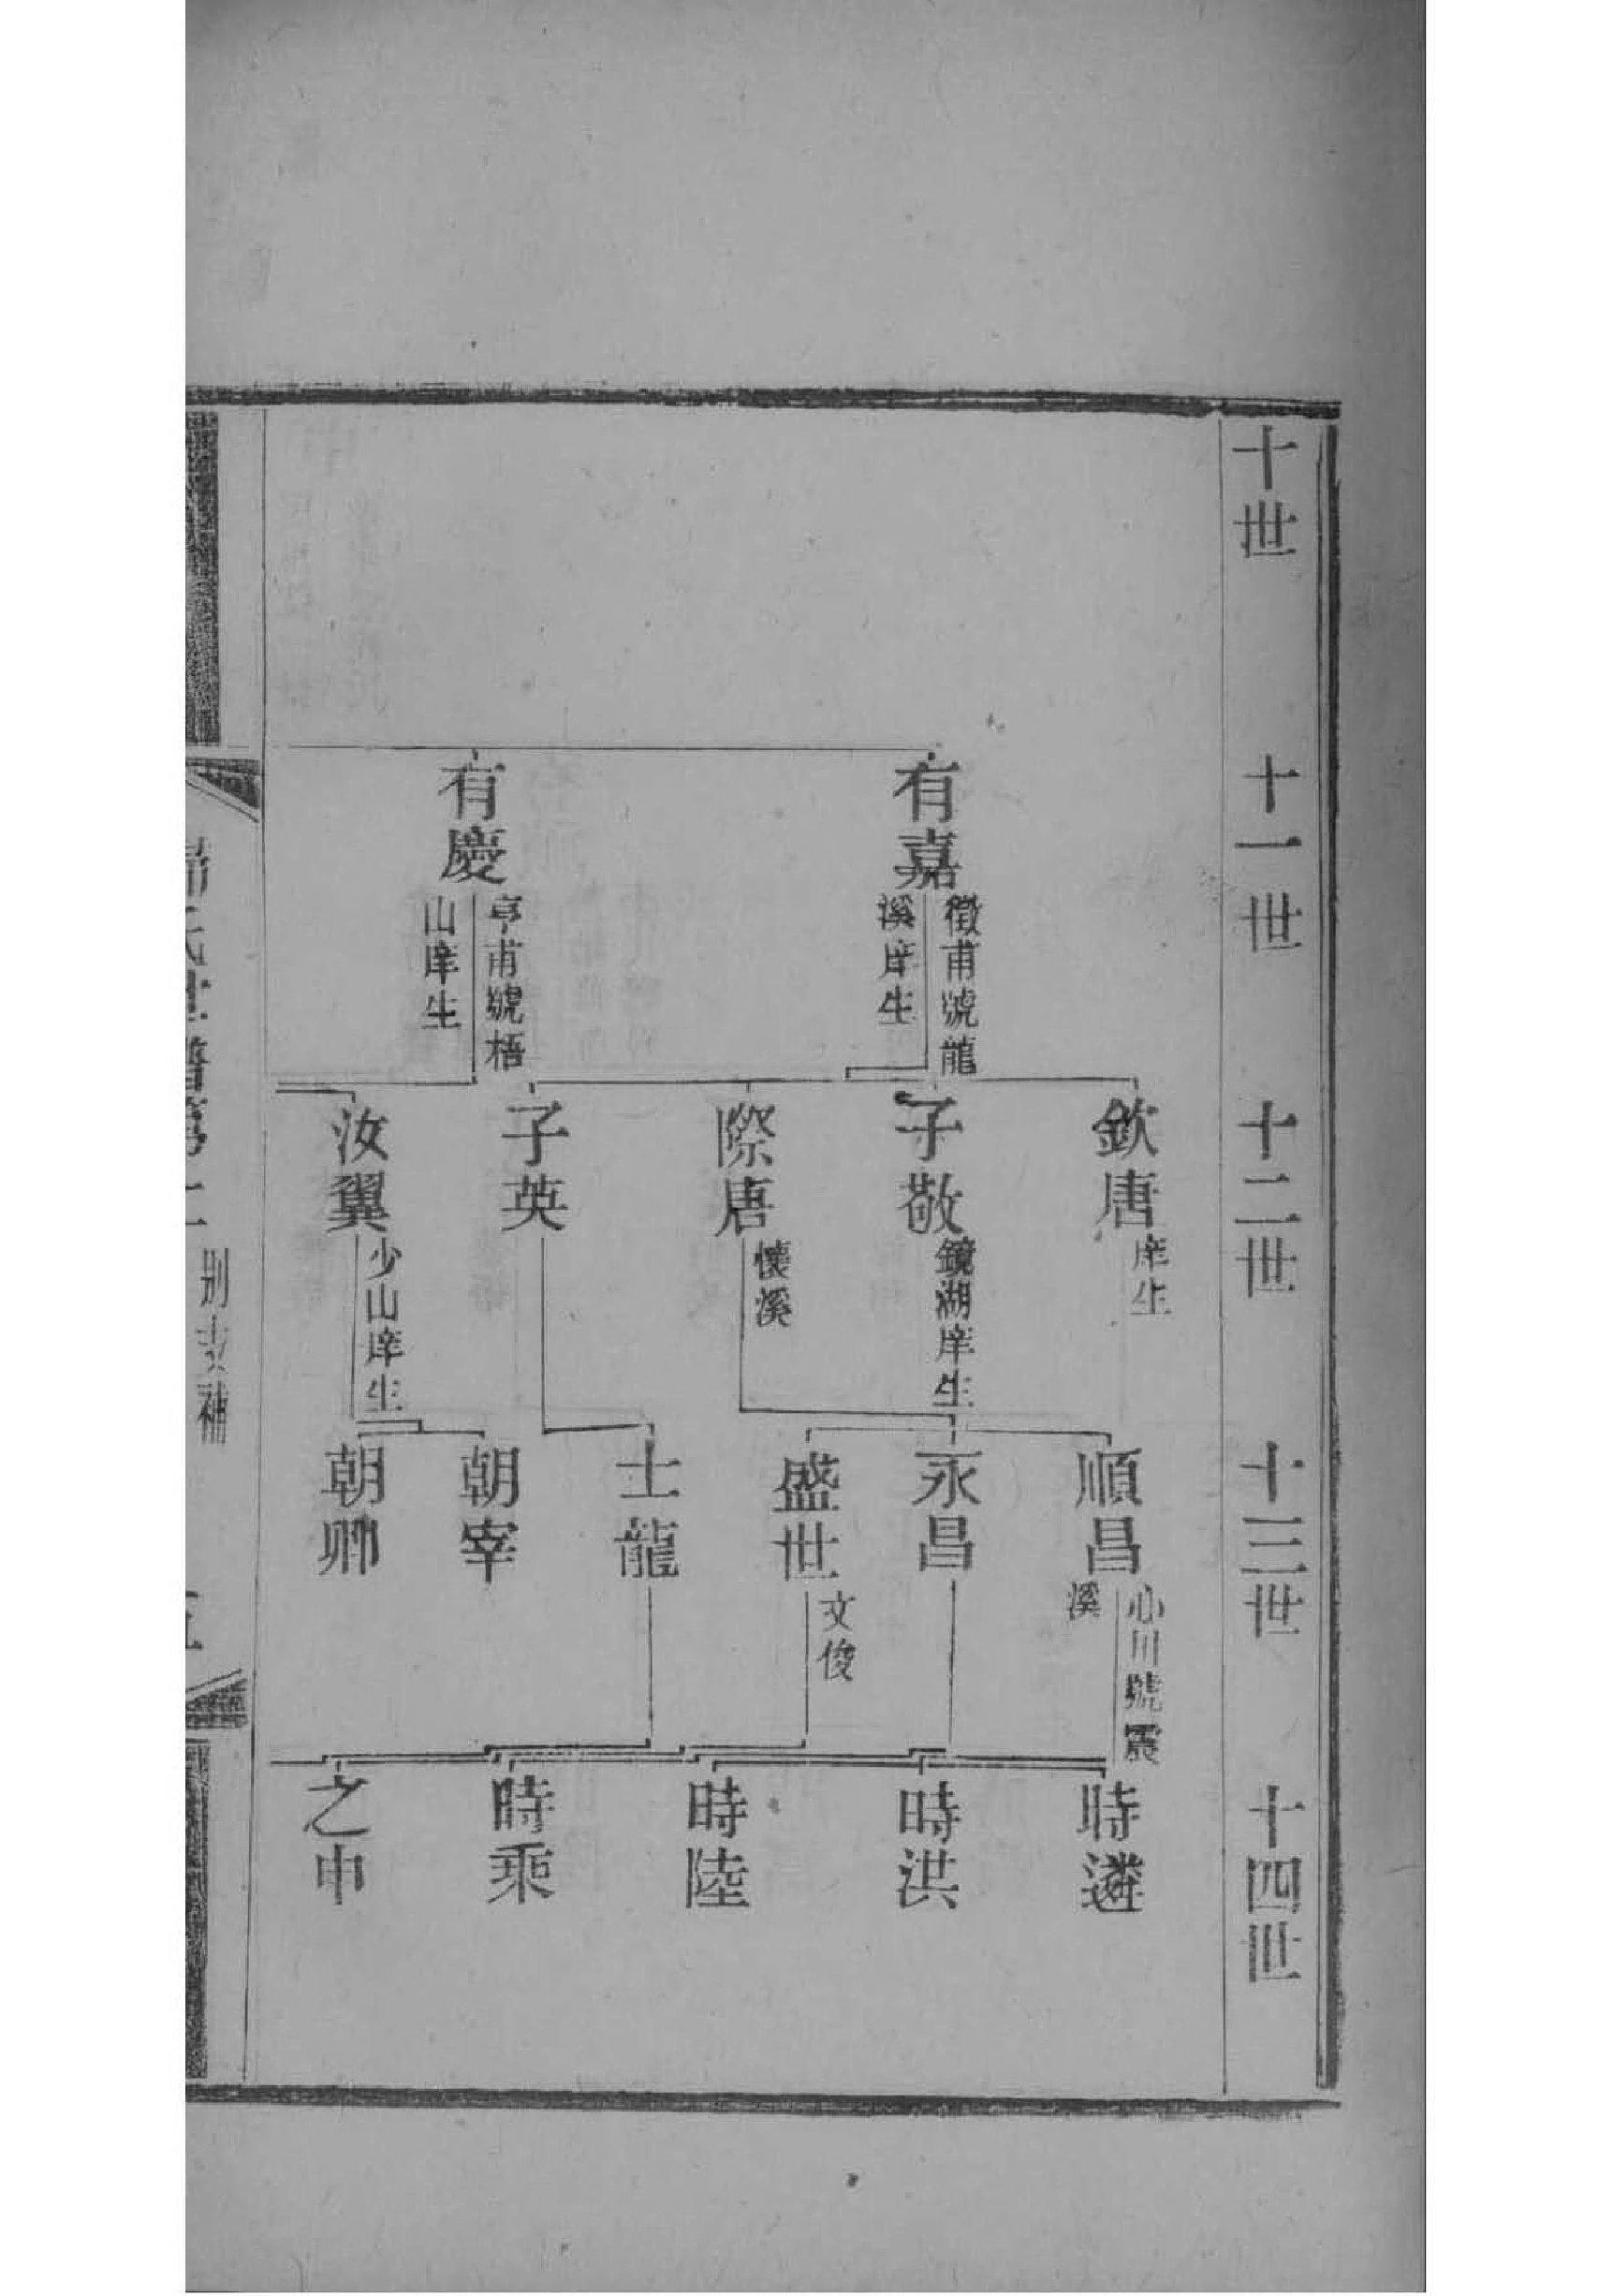 十世
十一世
十二世
十三世
十四世
有嘉
徵甫號龍
溪庠生
有慶
亨甫號梧
山庠生
欽唐
庠生
子敬
鏡湖庠生
際唐
懷溪
子英
汝翼
少山庠生
順昌
心川號震
溪
永昌
盛世
文俊
士龍
朝宰
朝卿
時遴
時洪
時陸
時乘
之申
歸氏世譜第二
別支補